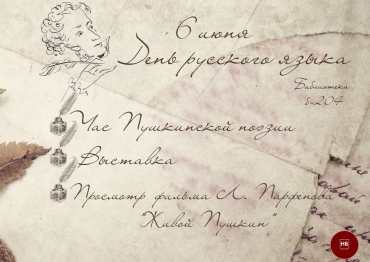 6 июня
День русского языка
Библиотека
5-204
Час Пушкинской поэзии
Выставка
Просмотр фильма Л. Парфенова
"Живой Пушкин"
НБ